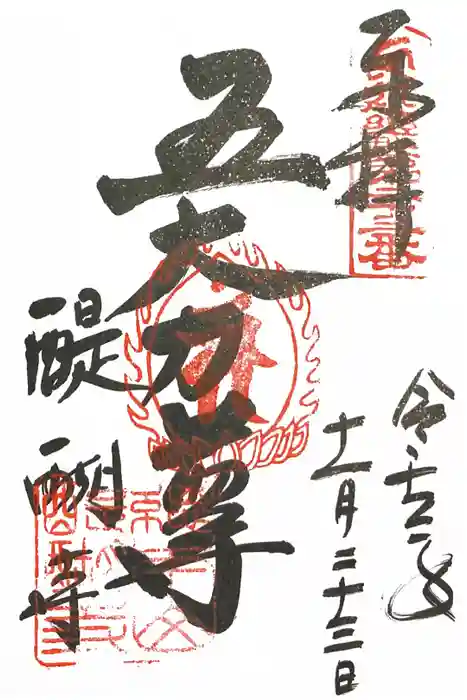 奉拝
五大力尊
醍醐寺
令和元年
十一月二十三日